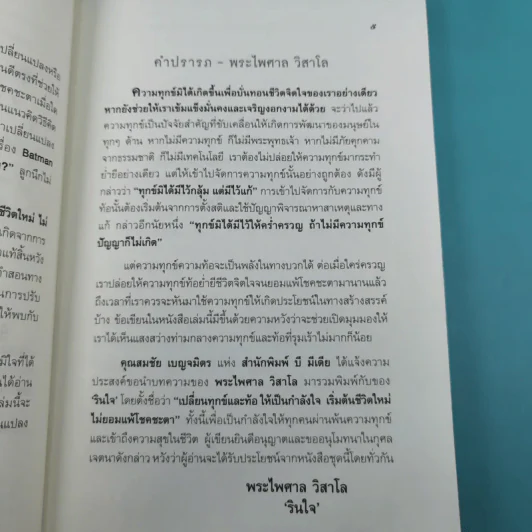 ๕
คำปรารภ - พระไพศาล วิสาโล
ความทุกข์มิได้เกิดขึ้นเพื่อบั่นทอนชีวิตจิตใจของเราอย่างเดียว
หากยังช่วยให้เราเข้มแข็งมั่นคงและเจริญงอกงามได้ด้วย จะว่าไปแล้ว
ความทุกข์เป็นปัจจัยสำคัญที่ขับเคลื่อนให้เกิดการพัฒนาของมนุษย์ใน
ทุกๆ ด้าน หากไม่มีความทุกข์ ก็ไม่มีพระพุทธเจ้า หากไม่มีภัยคุกคาม
จากธรรมชาติ ก็ไม่มีเทคโนโลยี เราต้องไม่ปล่อยให้ความทุกข์มากระทำ
ย่ำยีอย่างเดียว แต่ให้เข้าไปจัดการความทุกข์นั้นอย่างถูกต้อง ดังมีผู้
กล่าวว่า "ทุกข์มิได้มีไว้กลุ้ม แต่มีไว้แก้" การเข้าไปจัดการกับความทุกข์
ท้อนั้นต้องเริ่มต้นจากการตั้งสติและใช้ปัญญาพิจารณาหาสาเหตุและทาง
แก้ กล่าวอีกนัยหนึ่ง "ทุกข์มิได้มีไว้ให้คร่ำครวญ ถ้าไม่มีความทุกข์
ปัญญาก็ไม่เกิด"
แต่ความทุกข์ความท้อจะเป็นพลังในทางบวกได้ ต่อเมื่อใคร่ครวญ
เราปล่อยให้ความทุกข์ท้อย่ำยีชีวิตจิตใจจนยอมแพ้โชคชะตามานานแล้ว
ถึงเวลาที่เราควรจะหันมาใช้ความทุกข์ให้เกิดประโยชน์ในทางสร้างสรรค์
บ้าง ข้อเขียนในหนังสือเล่มนี้มีขึ้นด้วยความหวังว่าจะช่วยเปิดมุมมองให้
เราได้เห็นแสงสว่างท่ามกลางความทุกข์และท้อที่รุมเร้าไม่มากก็น้อย
คุณสมชัย เบญจมิตร แห่ง สำนักพิมพ์ บี มีเดีย ได้แจ้งความ
ประสงค์ขอนำบทความของ พระไพศาล วิสาโล มารวมพิมพ์กับของ
'รินใจ' โดยตั้งชื่อว่า "เปลี่ยนทุกข์และท้อ ให้เป็นกำลังใจ เริ่มต้นชีวิตใหม่
ไม่ยอมแพ้โชคชะตา" ทั้งนี้เพื่อเป็นกำลังใจให้ทุกคนผ่านพ้นความทุกข์
และเข้าถึงความสุขในชีวิต ผู้เขียนยินดีอนุญาตและขออนุโมทนาในกุศล
เจตนาดังกล่าว หวังว่าผู้อ่านจะได้รับประโยชน์จากหนังสือชุดนี้โดยทั่วกัน
พระไพศาล วิสาโล
'รินใจ'